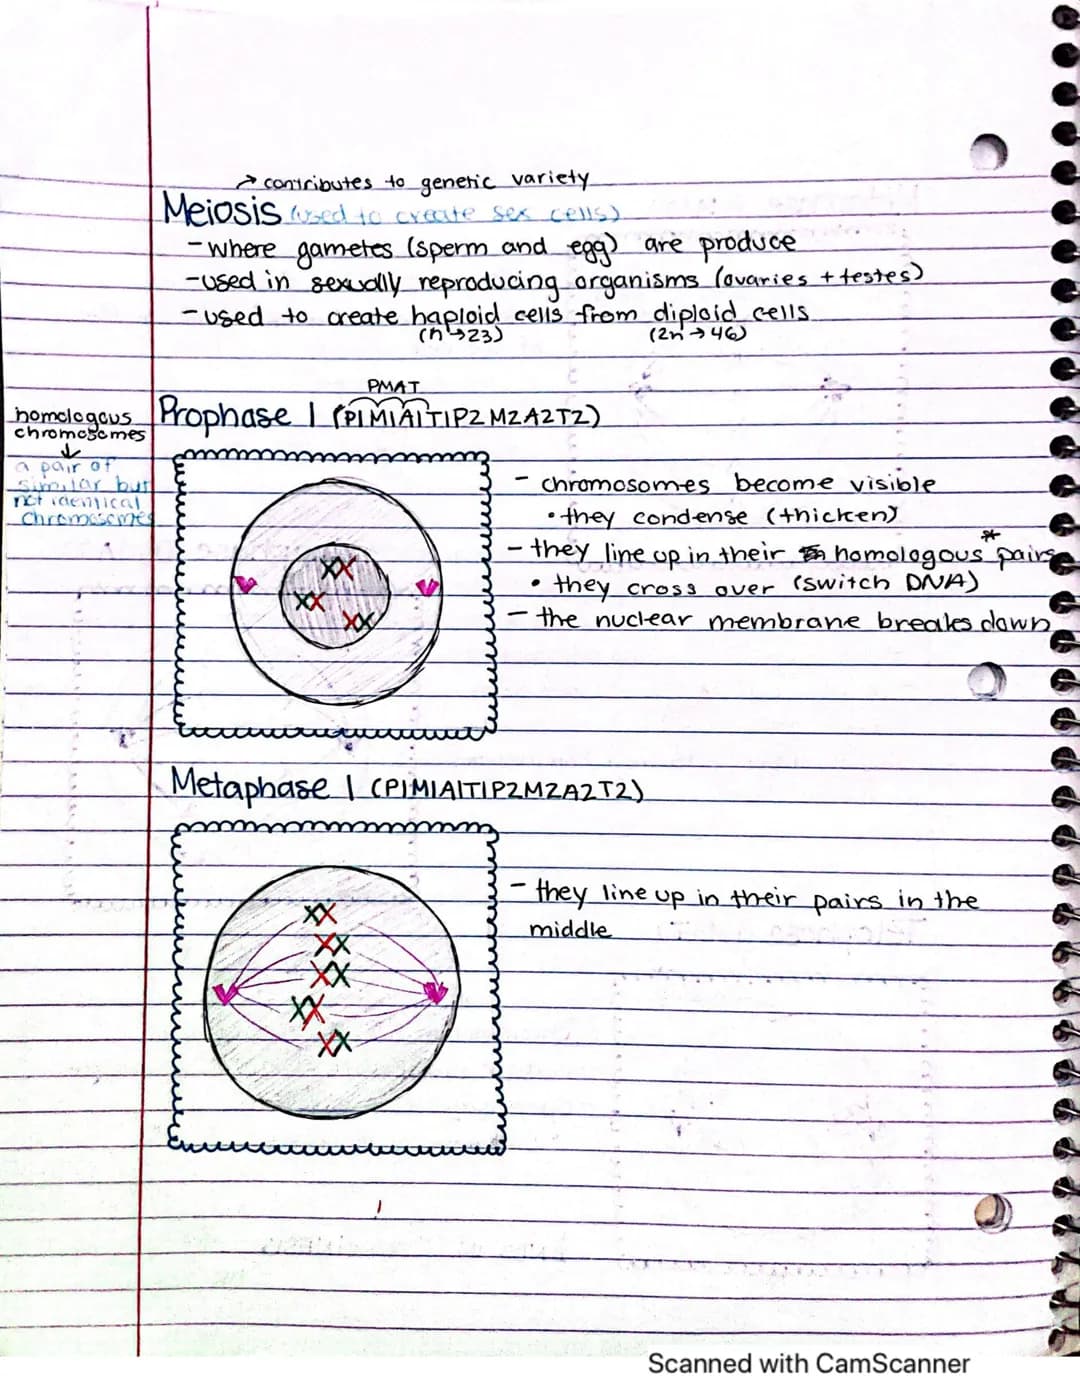 → contributes to genetic variety
Meiosis (used to create sex cells)
- where gametes (sperm and egg) are produce
- used in sexually reproducing organisms (ovaries + testes)
- used to create haploid cells from diploid cells
(n→23) (2n→46)
PMAT
Prophase 1 (P1M1A1T1P2M2A2T2)
homologous
chromosomes
↓
a pair of
similar but
not identical
chromosomes
- chromosomes become visible
• they condense (thicken)
- they line up in their homologous pairs *
• they cross over (switch DNA)
- the nuclear membrane breaks down
Metaphase 1 (P1M1A1T1P2M2A2T2)
- they line up in their pairs in the
middle
Scanned with CamScanner